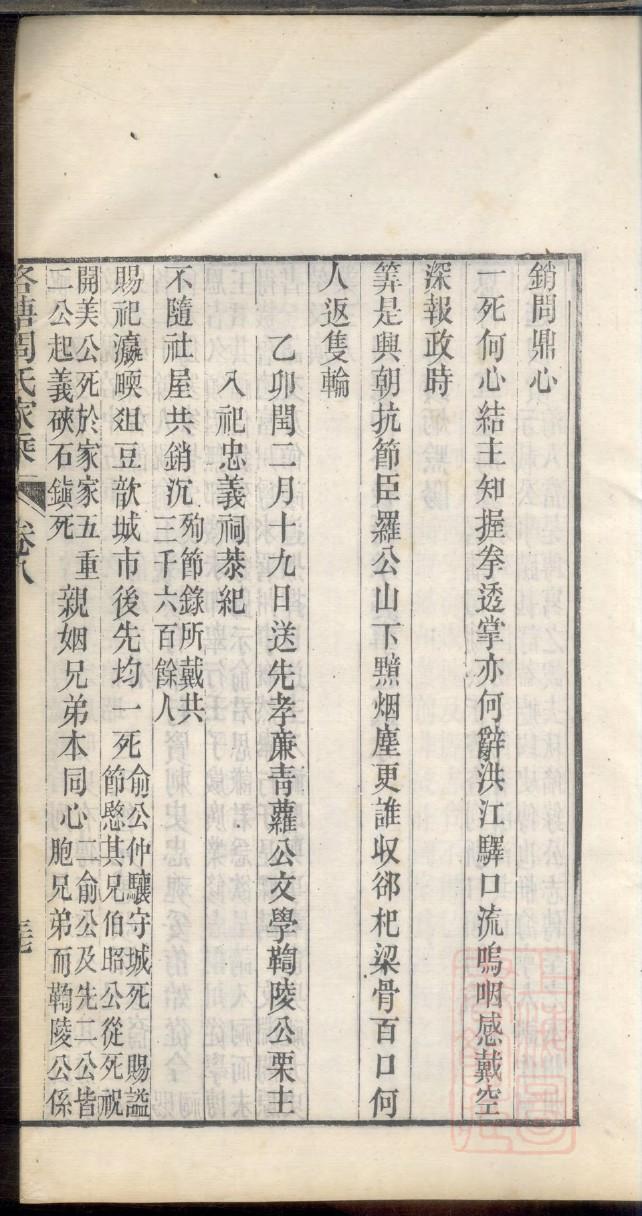 銷問鼎心
一死何心結主知握拳透掌亦何辭洪江驛口流嗚咽感戴空
深報政時
筭是興朝抗節臣羅公山下黯烟塵更誰収郤杞梁骨百口何
人返隻輪
乙卯閏二月十九日送先孝亷青蘿公文學鞠陵公栗主
入祀忠義祠恭紀
不隨社屋共銷沉
殉節錄所戴共
三千六百餘人
賜祀瀛堧爼豆歆城市後先均一死
俞公仲驤守城死 賜諡
節愍其兄伯昭公從死祝
開美公死於家家五重
二公起義硤石鎮死
親姻兄弟本同心
二俞公及先二公皆
胞兄弟而鞠陵公係
周氏家乘
卷八